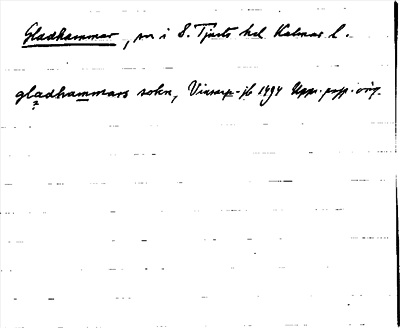 Gladhammar, sn i S. Tjusts hd Kalmar l.
gladhammars sokn, Vinsarp-jb 1494 Upps. papp. orig.